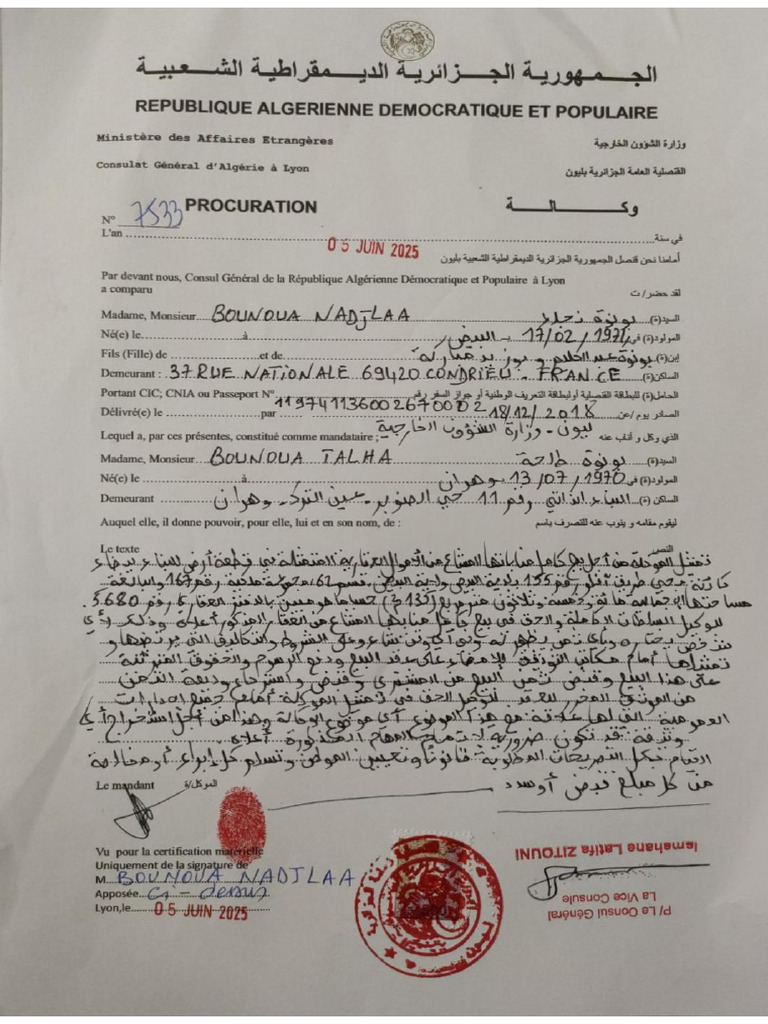 الجمهورية الجزائرية الديمقراطية الشعبية
REPUBLIQUE ALGERIENNE DEMOCRATIQUE ET POPULAIRE
Ministère des Affaires Etrangères وزارة الشؤون الخارجية
Consulat Général d'Algérie à Lyon القنصلية العامة الجزائرية بليون
PROCURATION وكالة
N° 7533
L'an في سنة
05 JUIN 2025
أمامنا نحن قنصل الجمهورية الجزائرية الديمقراطية الشعبية بليون
Par devant nous, Consul Général de la République Algérienne Démocratique et Populaire à Lyon
a comparu لقد حضر/ت
Madame, Monsieur BOUNOUA NADJLAA بونوة نجلاء السيد(ة)
Né(e) le à 17/02/1974 البيض المولود(ة) في
Fils (Fille) de et de بونوة عبد الحليم و إبن(ة)
Demeurant : 37 RUE NATIONALE 69420 CONDRIEU - FRANCE الساكن(ة)
Portant CIC, CNIA ou Passeport N° 119741136002670002 الحامل(ة) للبطاقة القنصلية أو لبطاقة التعريف الوطنية أو جواز السفر رقم
Délivré(e) le par 18/12/2018 الصادر يوم/عن
ليون - وزارة الشؤون الخارجية
Lequel a, par ces présentes, constitué comme mandataire ; الذي وكل و أناب عنه
Madame, Monsieur BOUNOUA TALHA بونوة طلحة السيد(ة)
Né(e) le 13/07/1970 بوهران المولود(ة) في
Demeurant البناء الذاتي رقم 11 حي الصنوبر - عين الترك - وهران الساكن(ة)
Auquel elle, il donne pouvoir, pour elle, lui et en son nom, de : ليقوم مقامه و ينوب عنه للتصرف باسم
Le texte النص
تمثيل الموكلة من أجل بيع كامل منابها المشاع من الأموال العقارية المتمثلة في قطعة أرض للبناء بيضاء
كائنة بحي طريق أفلو رقم 155 بلدية البيض ولاية البيض، قسم 62 مجموعة ملكية رقم 167 والبالغة
مساحتها مائة وخمسة وثلاثون متر مربع (135 م²) حسبما هو مبين بالدفتر العقاري رقم 5.680
للوكيل السلطات الكاملة والحق في بيع كامل منابها المشاع من العقار المذكور أعلاه وذلك لأي
شخص يختاره وبأي ثمن يظهر له وعلى الشروط والتكاليف التي يرتضيها و
تمثيلها أمام مكاتب التوثيق للإمضاء على عقد البيع ودفع الرسوم والحقوق المترتبة
على هذا البيع وقبض ثمن البيع من المشتري وقبض واسترجاع وديعة الثمن
من الموثق المحرر للعقد للوكيل الحق في تمثيل الموكلة أمام جميع الإدارات
العمومية التي لها علاقة مع هذا الموضوع أي موضوع الوكالة وهذا من أجل استخراج أي
وثيقة قد تكون ضرورية لإتمام المهام المذكورة أعلاه
القيام بكل التصريحات المطلوبة قانونا وتعيين الموطن وتسلم كل إبراء أو مخالصة
من كل مبلغ قبض أو سدد
Le mandant الموكل/ة
Vu pour la certification matérielle
Uniquement de la signature de
M BOUNOUA NADJLAA
Apposée ci-dessus
Lyon,le 05 JUIN 2025
P/ Le Consul Général
La Vice Consule
Ismahane Latifa ZITOUNI